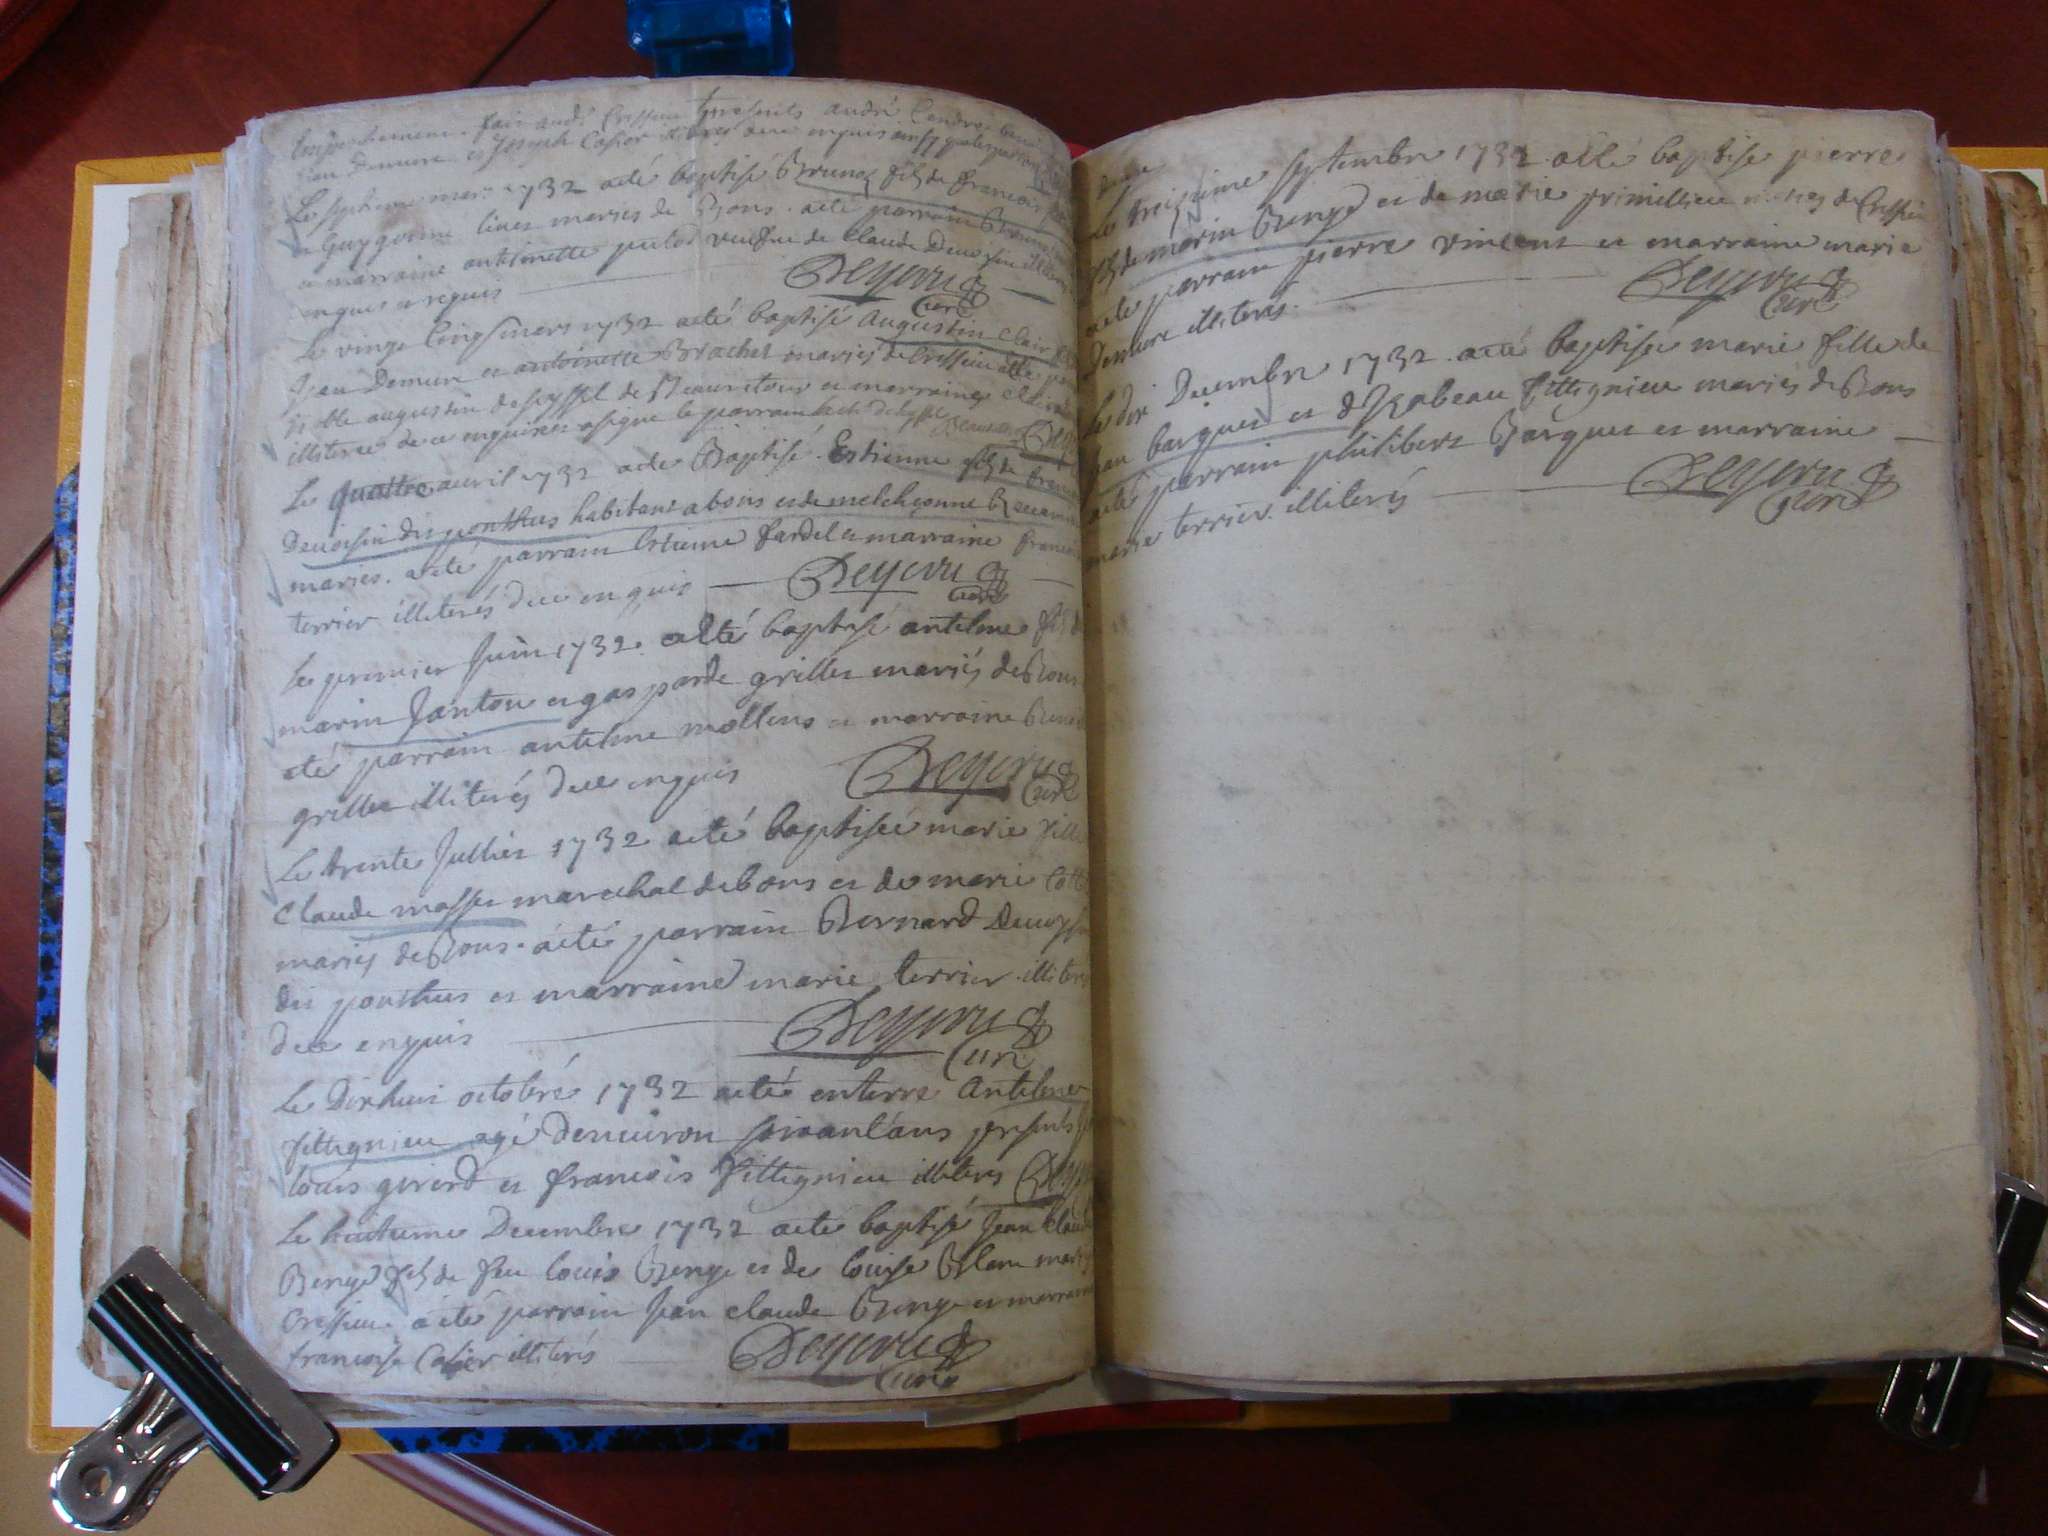 fait aud. Cressieu presents andré
jean Demeure et Joseph Casier
Le septieme mars 1732 a eté baptisé Brunoz fils de francois
maries de Bons. a eté parrain
et marraine antoinette veufve de Claude Devoisin
enquis et requis Deyeru
Curé
Le vingt cinq mars 1732 a eté baptisé augustin clair
Jean Demeure et antoinette Brachet mariés de Cressieu a eté
noble augustin de seyssel de Beauretour et marraine claire
illiterée de ce enquise et a signé le parrain
Le quattre avril 1732 a ete Baptisé Estienne fils de
Devoisin dis ponthus habitant a bons et de melchionne
mariés. a eté parrain Estienne fardel et marraine
terrier illiterés de ce enquis Deyeru
Curé
Le premier Juin 1732. a eté baptisé antelme fils
marin Janton et gasparde grillet mariés de Bons
eté parrain antelme mollens et marraine
grillet illiterés de ce enquis Deyeru
Curé
Le trente Jullier 1732 a eté baptiseé marie fille
Claude masset marechal de bons et de marie
mariés de Bons. a eté parrain Bernard Devoysin
dis ponthus et marraine marie terrier illiterés
de ce enquis Deyeru
Curé
Le Dixhuit octobré 1732 a eté enterré Antelme
fittignieu agé d'enuiron soixant'ans presents
louis girerd et francois fittignieu illiteres
Le huitieme Decembre 1732 a eté baptisé Jean claude
Benge fils de feu louis Benge et de louise Blanc
Cressieu a eté parrain Jean claude Benge et marraine
francoise Casier illiterés Deyeru
Curé
Le treizieme septembre 1732 a eté baptise pierre
fils de marin Benge et de marie primillieu mariés de Cressieu
a eté parrain pierre vincent et marraine marie
Demeure illiterés. Deyeru
Curé
Le dix Decembre 1732 a eté baptisée marie fille de
Jean barquet et d'Izabeau fittignieu mariés de Bons
a eté parrain philibert Barquet et marraine
marie terrier illiterés Deyeru
Curé